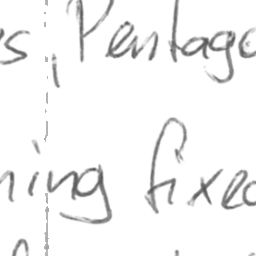 s, Pentago
ning fixed